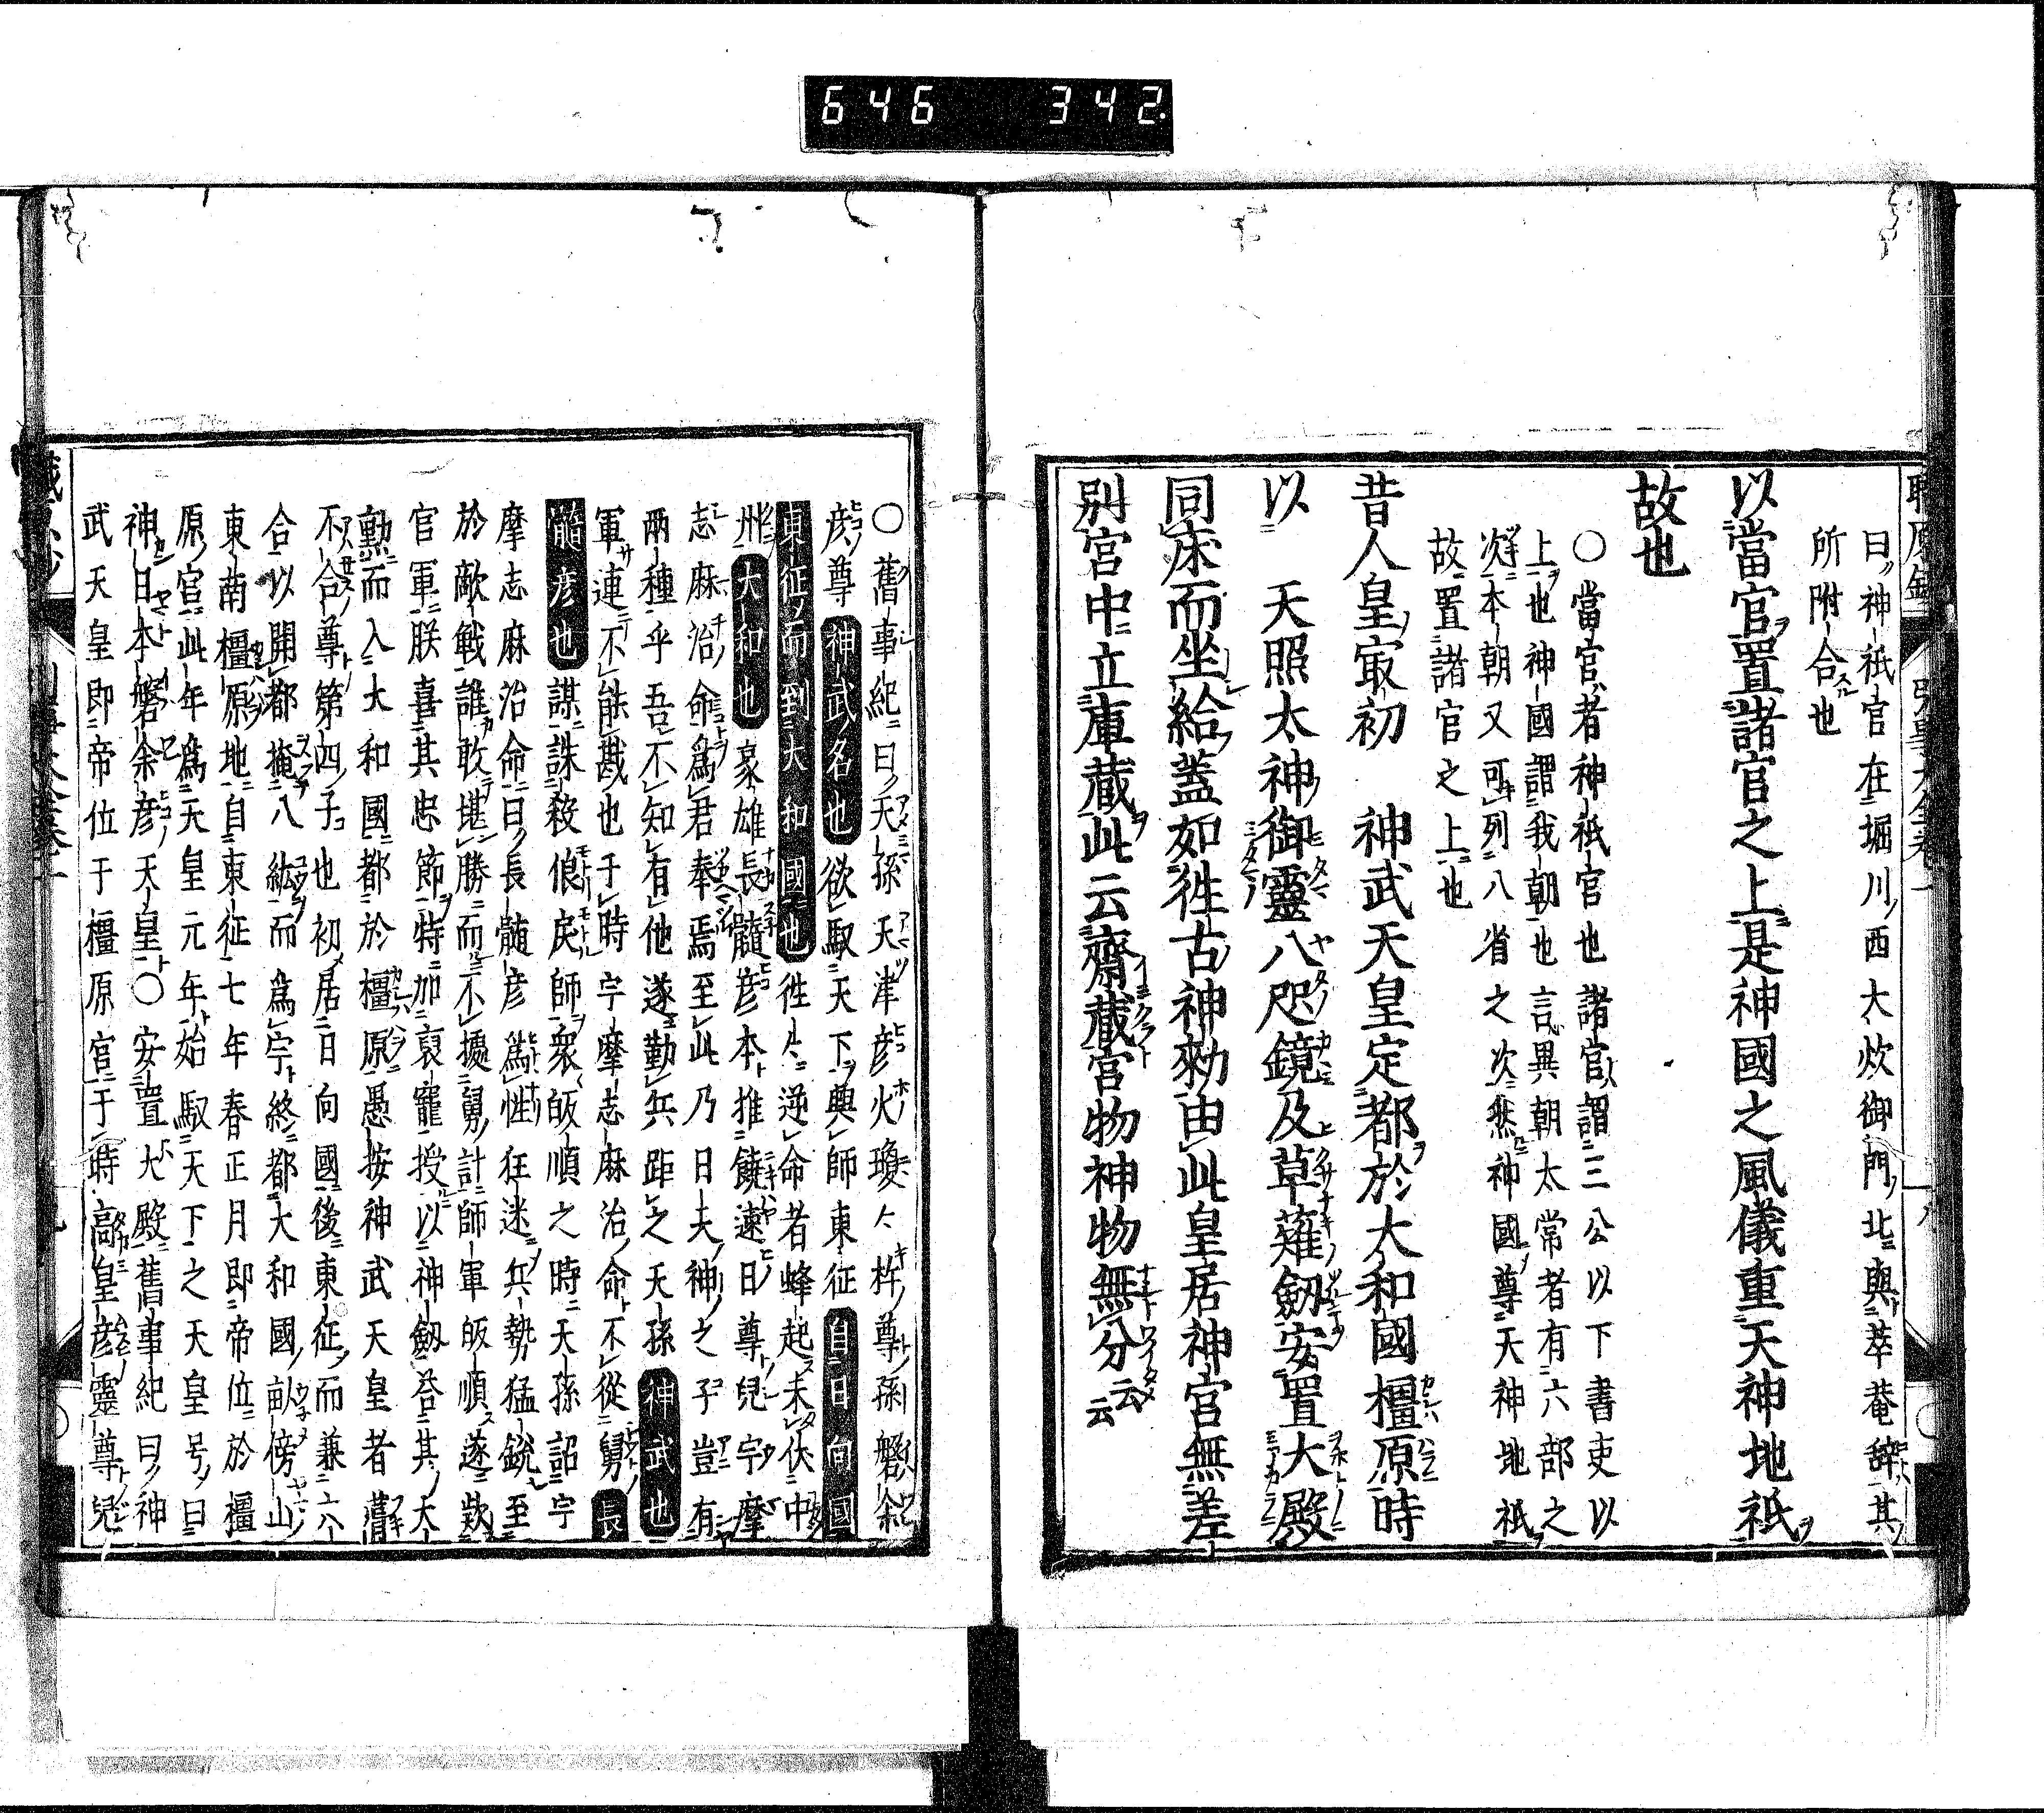 646 342
曰神祇官在堀川西大炊御門北與萃菴辭其
所附合也
以當官置諸官之上是神國之風儀重天神地祇
故也
〇當官者神祇官也諸官謂三公以下書吏以
上也神國謂我朝也言異朝太常者有六部之
次本朝又可列八省之次然神國尊天神地祇
故置諸官之上也
昔人皇冣初　神武天皇定都於大和國橿原時
以　天照太神御靈八咫鏡及草薙劔安置大殿
同床而坐給蓋如徃古神勑由此皇居神宮無差
別宮中立庫蔵此云齋蔵宮物神物無分云云
〇舊事紀曰天孫天津彦火瓊〻杵尊孫磐余
彦尊神武名也欲馭天下興師東征自日向國
東征而到大和國也徃〻逆命者蜂起未伏中
州大和也豪雄長髓彦本推饒速日尊兒宇摩
志麻治命爲君奉焉至此乃曰夫神之子豈有
兩種乎吾不知有他遂勤兵距之天孫神武也
軍連不能戡也于時宇摩志麻治命不從舅長
髓彦也謀誅殺俍戻師衆皈順之時天孫詔宇
摩志麻治命曰長髄彦爲性狂迷兵勢猛銳至
於敵戰誰敢堪勝而不據舅計師軍皈順遂欵
官軍朕喜其忠節特加裒寵授以神劔荅其大
勲而入大和國都於橿原愚按神武天皇者
不合尊第四子也初居日向國後東征而兼六
合以開都掩八紘而爲宇終都大和國畝傍山
東南橿原地自東征七年春正月即帝位於橿
原宮此年爲天皇元年始馭天下之天皇号曰
神日本磐余彦天皇〇安置大殿舊事紀曰神
武天皇即帝位于橿原宮于時高皇彦靈尊兒